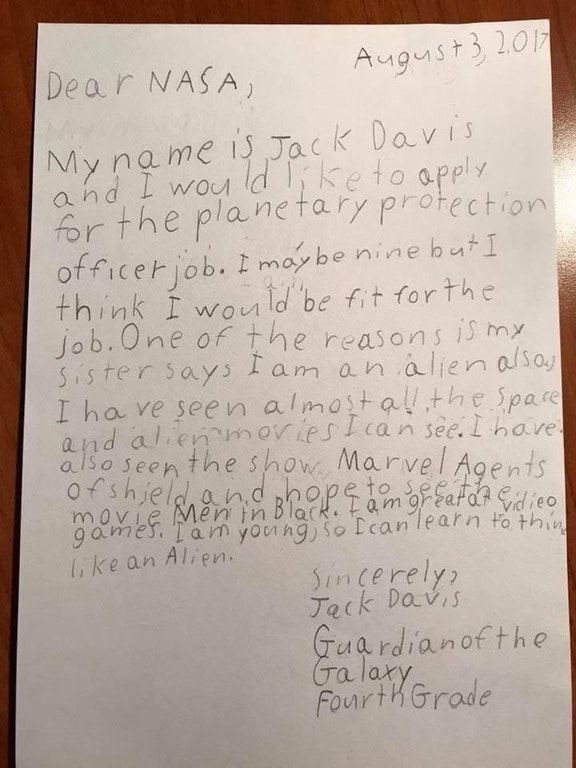 August 3, 2017
Dear NASA,
My name is Jack Davis
and I would like to apply
for the planetary protection
officer job. I may be nine but I
think I would be fit for the
job. One of the reasons is my
sister says I am an alien also,
I have seen almost all the space
and alien movies I can see. I have
also seen the show Marvel Agents
of Shield and hope to see the
movie Men in Black. I am great at vidieo
games. I am young, so I can learn to think
like an Alien.
Sincerely,
Jack Davis
Guardian of the
Galaxy
Fourth Grade